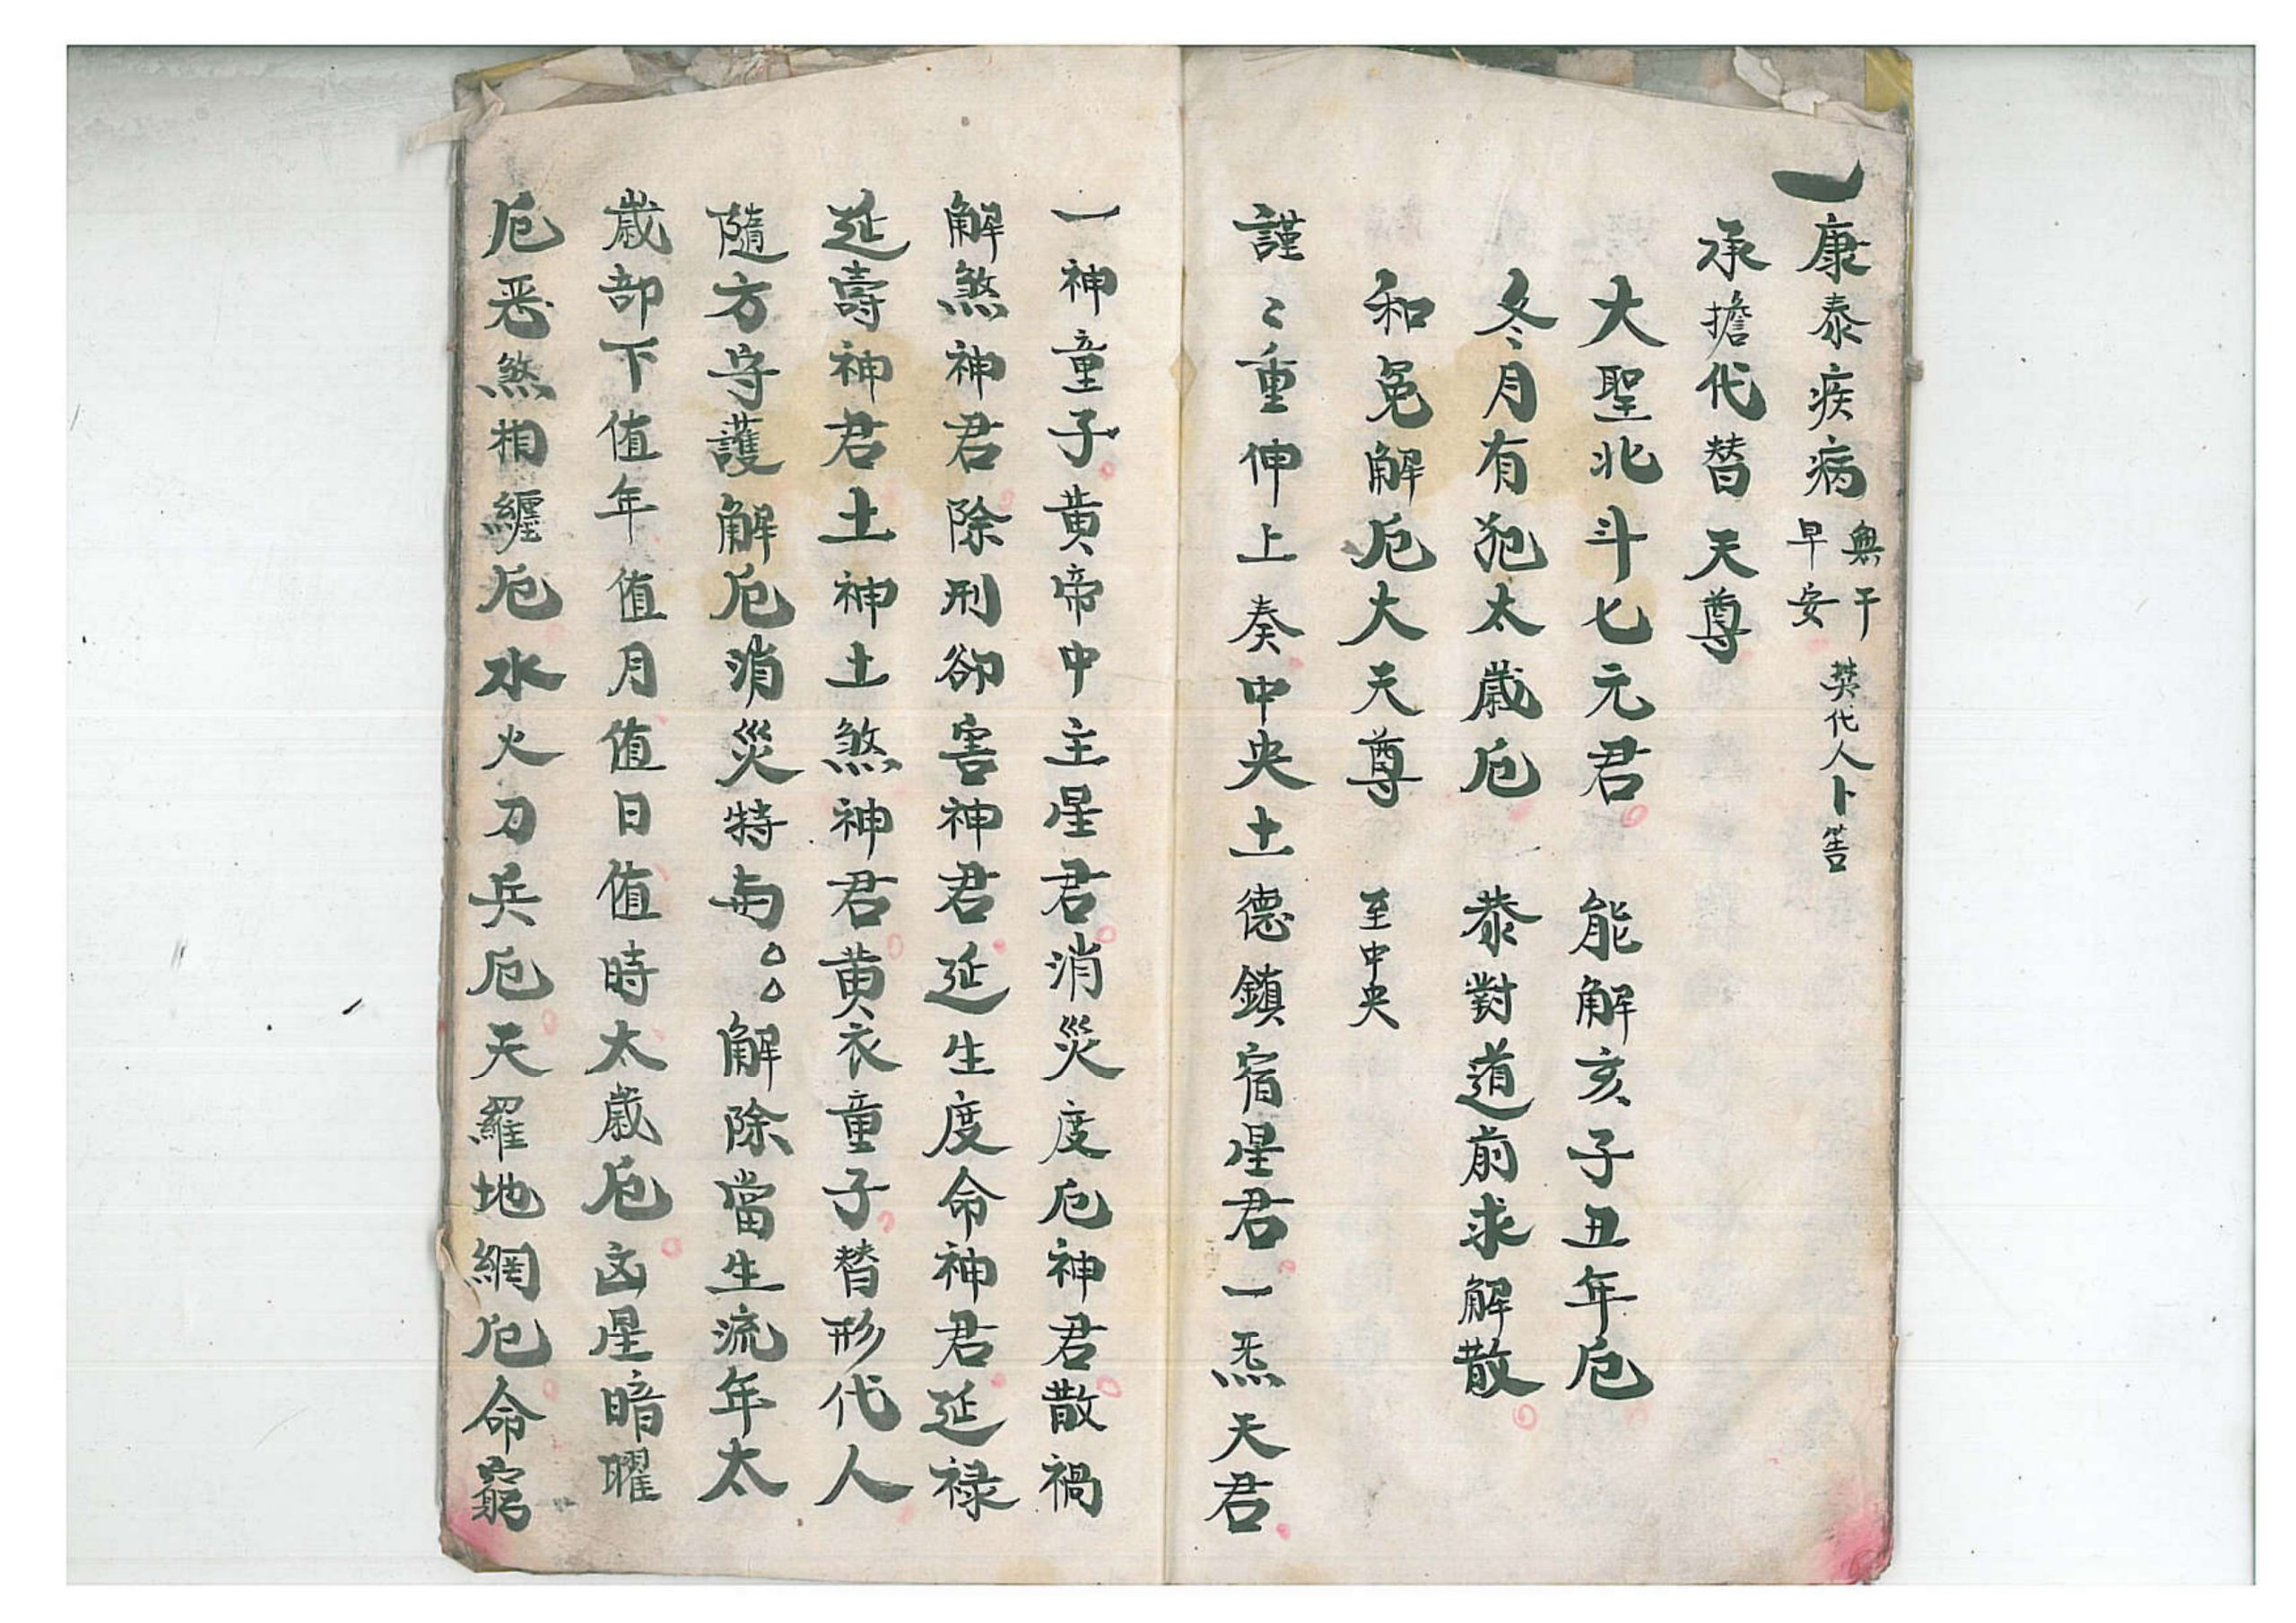 康泰疾病無干早安 英代人卜筶
承擔代替天尊
大聖北斗七元君 能解亥子丑年厄
冬月有犯太歲厄 恭對道前求解散
和冤解厄大天尊 至中央
謹〻重伸上奏中央土德鎮宿星君一炁天君
一神童子黄帝中主星君消災度厄神君散禍
解煞神君除刑卻害神君延生度命神君延禄
延壽神君土神土煞神君黄衣童子替形代人
隨方守護解厄消災特与△△解除當生流年太
歲部下值年值月值日值時太歲厄凶星暗曜
厄恶煞相纏厄水火刀兵厄天羅地網厄命窮